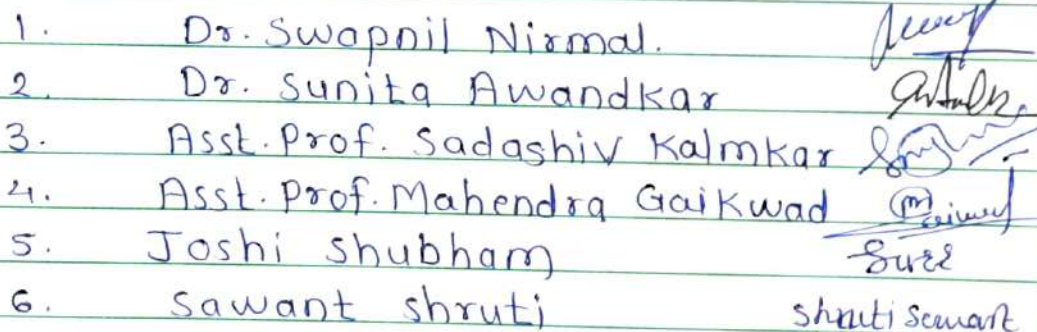 1. Dr. Swapnil Nirmal.
2. Dr. Sunita Awandkar
3. Asst. Prof. Sadashiv Kalmkar
4. Asst. Prof. Mahendra Gaikwad
5. Joshi Shubham
6. Sawant Shruti Shruti Sawant